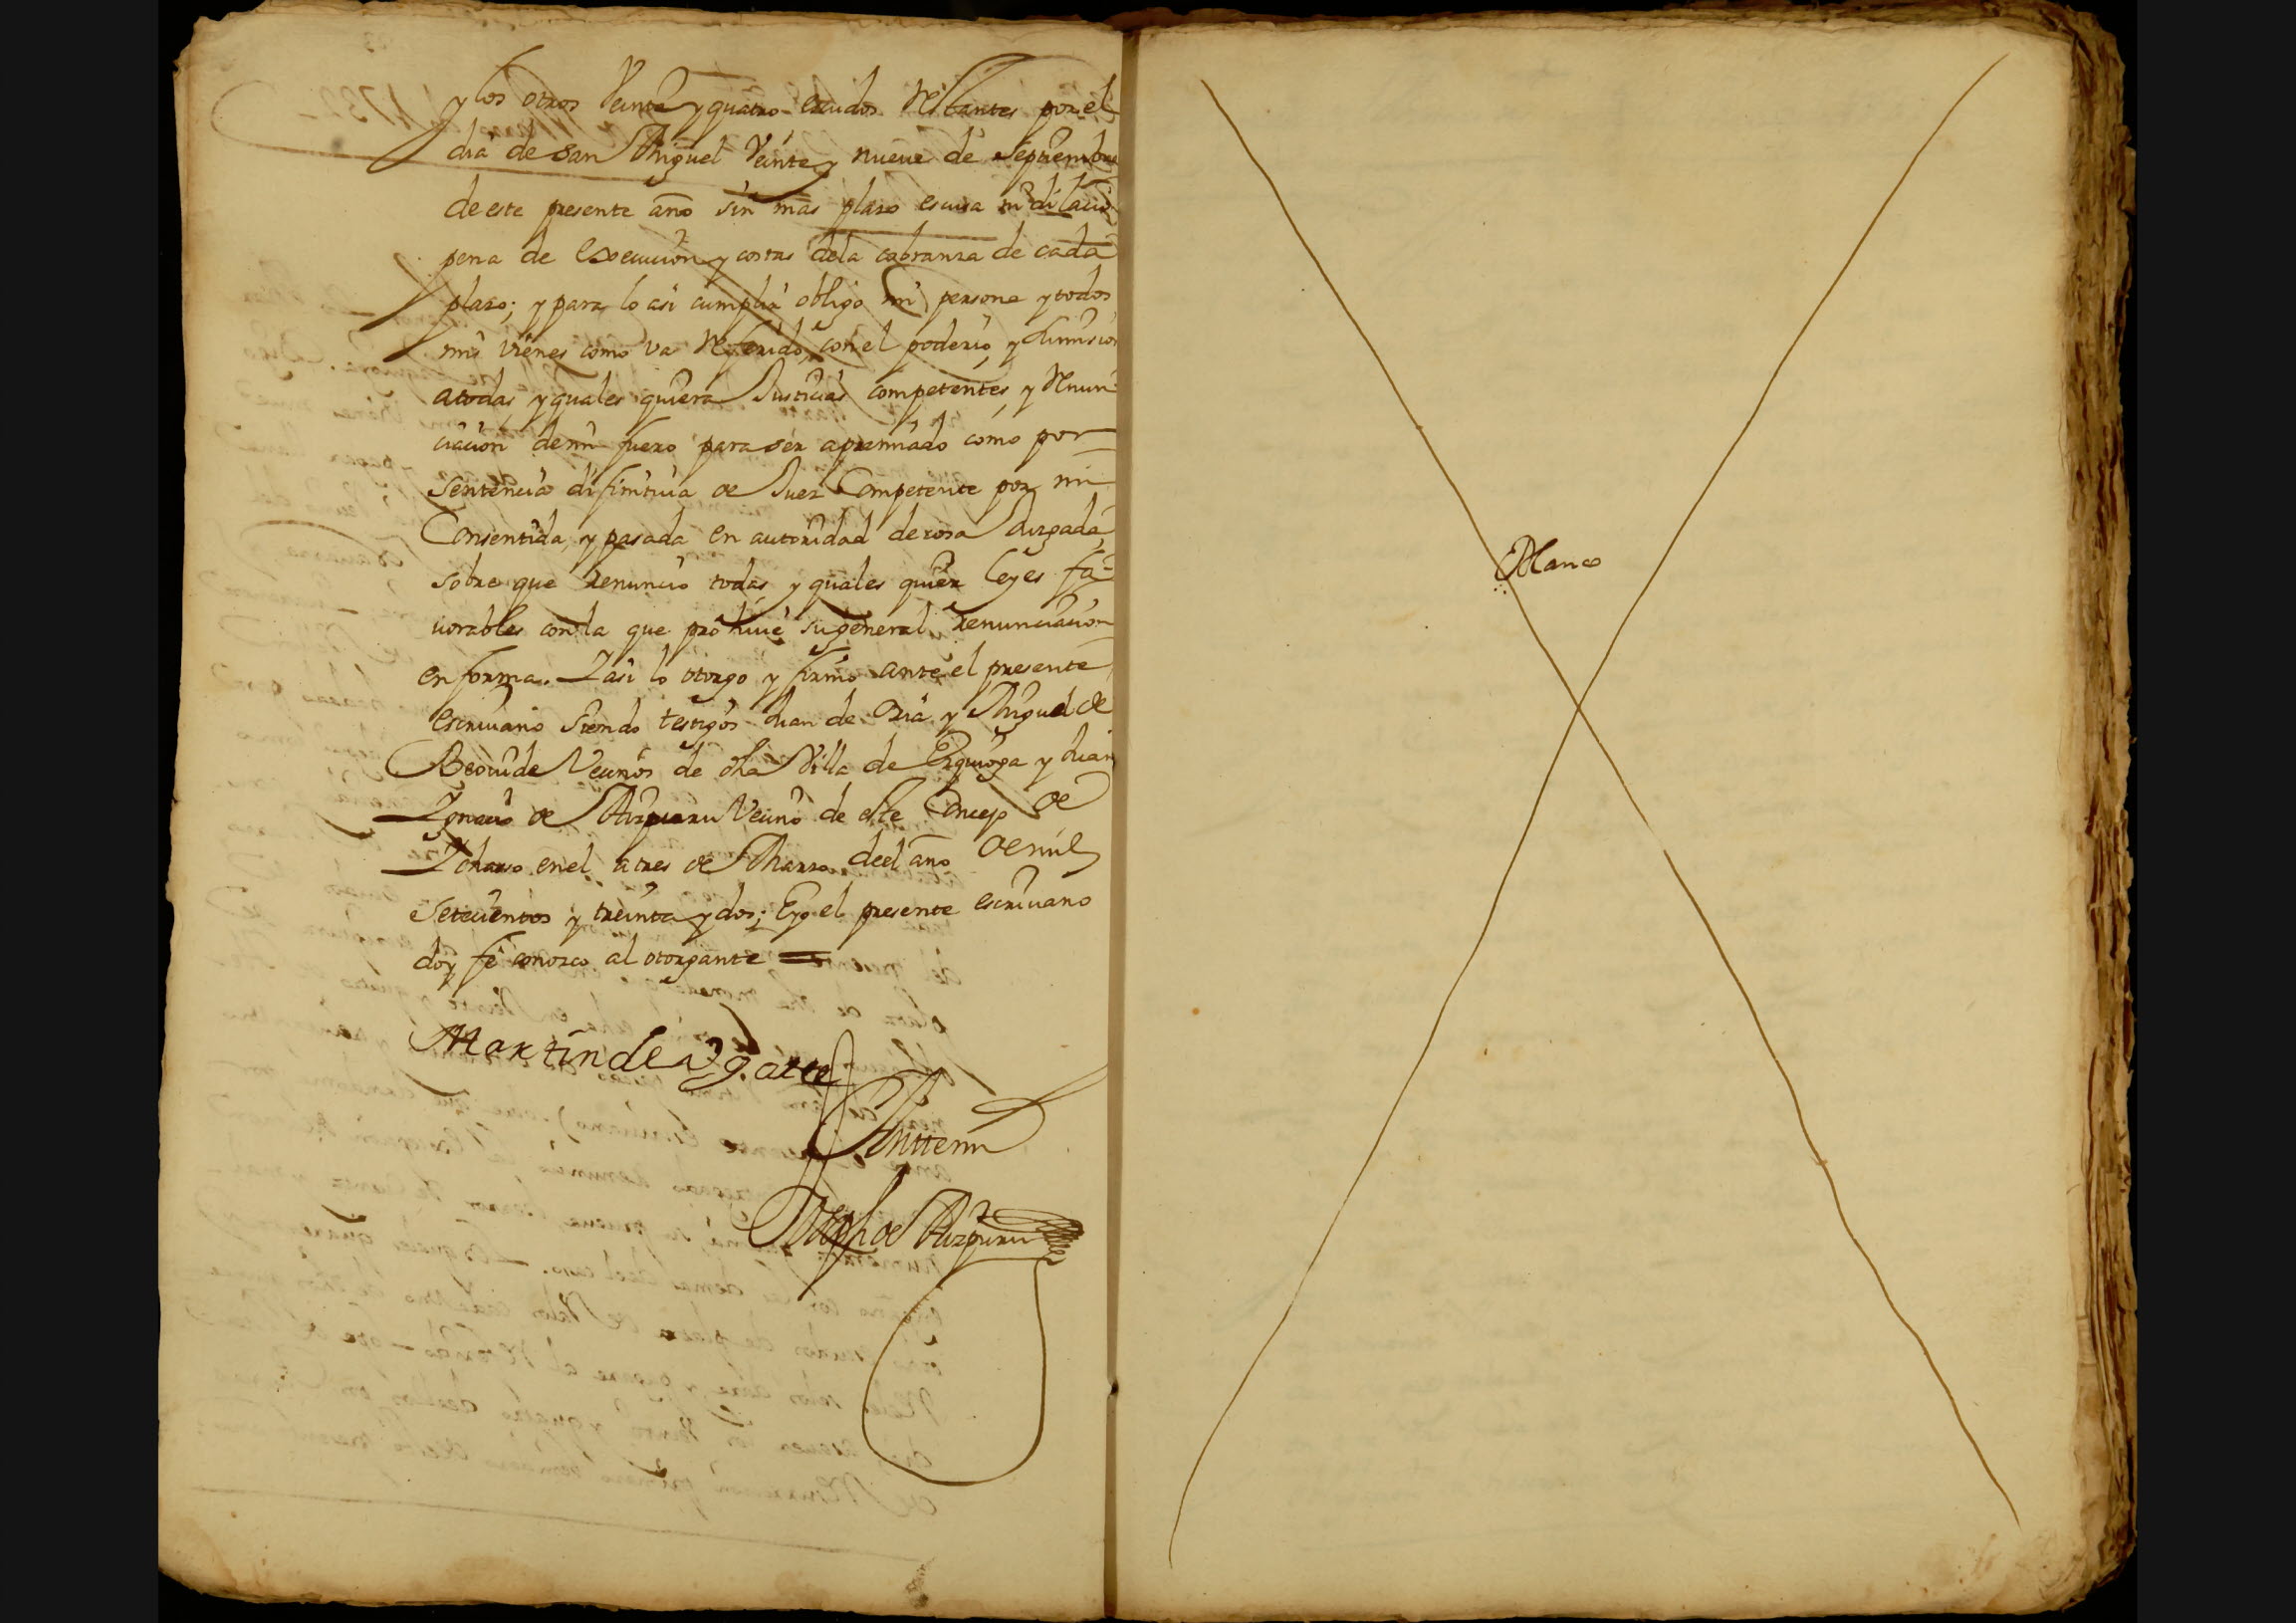 y los otros Veinte y quatro escudos Restantes por el
dia de San Miguel Veinte y nueve de Septiembre
de este presente año sin mas plazo escusa ni dilacion
pena de execucion y costas dela cobranza de cada
plazo; y para lo asi cumplir obligo mi persona y todos
mis vienes como va Referido, con el poderio y sumision
a todas y quales quiera Justicias competentes, y Renun-
ciacion de mi fuero para ser apremiado como por
Sentencia difinitiva de Juez Competente por mi
Consentida, y pasada en autoridad de cosa Juzgada
sobre que Renuncio todas y quales quier leyes fa-
vorables con la que prohive su general renunciacion
en forma. Y asi lo otorgo y firmo ante el presente
escrivano siendo testigos Juan de Oria y Miguel de
Beocuide Vecinos de dha Villa de Ezquioga y Juan
Ygnacio de Aizpuru Vecino de este Concejo de
Ychaso en el a tres de Marzo deel año de mil
Setecientos y treinta y dos; E yo el presente escrivano
doy fe conozco al otorgante =
Martin de Vgarte
Antte mi
Joseph de Aizpuru
Blanco